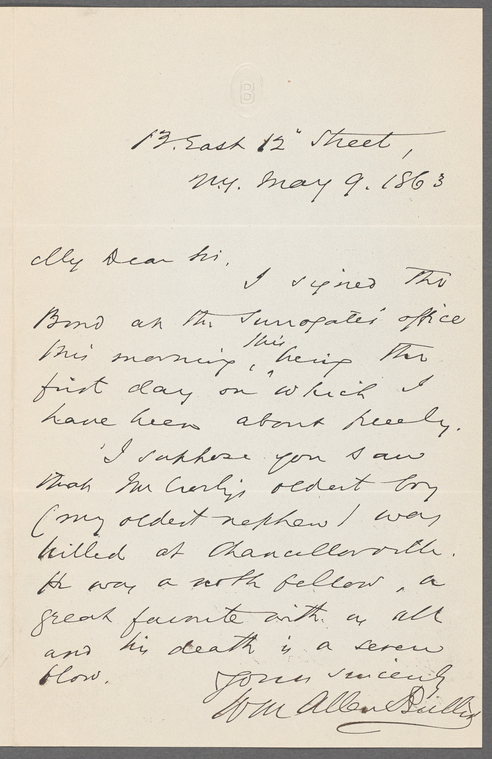 B
13. East 12" Street,
N.Y. May 9. 1863
My Dear Sir,
I signed the
Bond at the Surrogates' office
this morning, this being the
first day on which I
have been about freely.
I suppose you saw
that Mr Crosby's oldest boy
(my oldest nephew) was
killed at Chancellorville.
He was a noble fellow, a
great favorite with us all
and his death is a severe
blow.
Yours sincerely
Wm Allen Butler